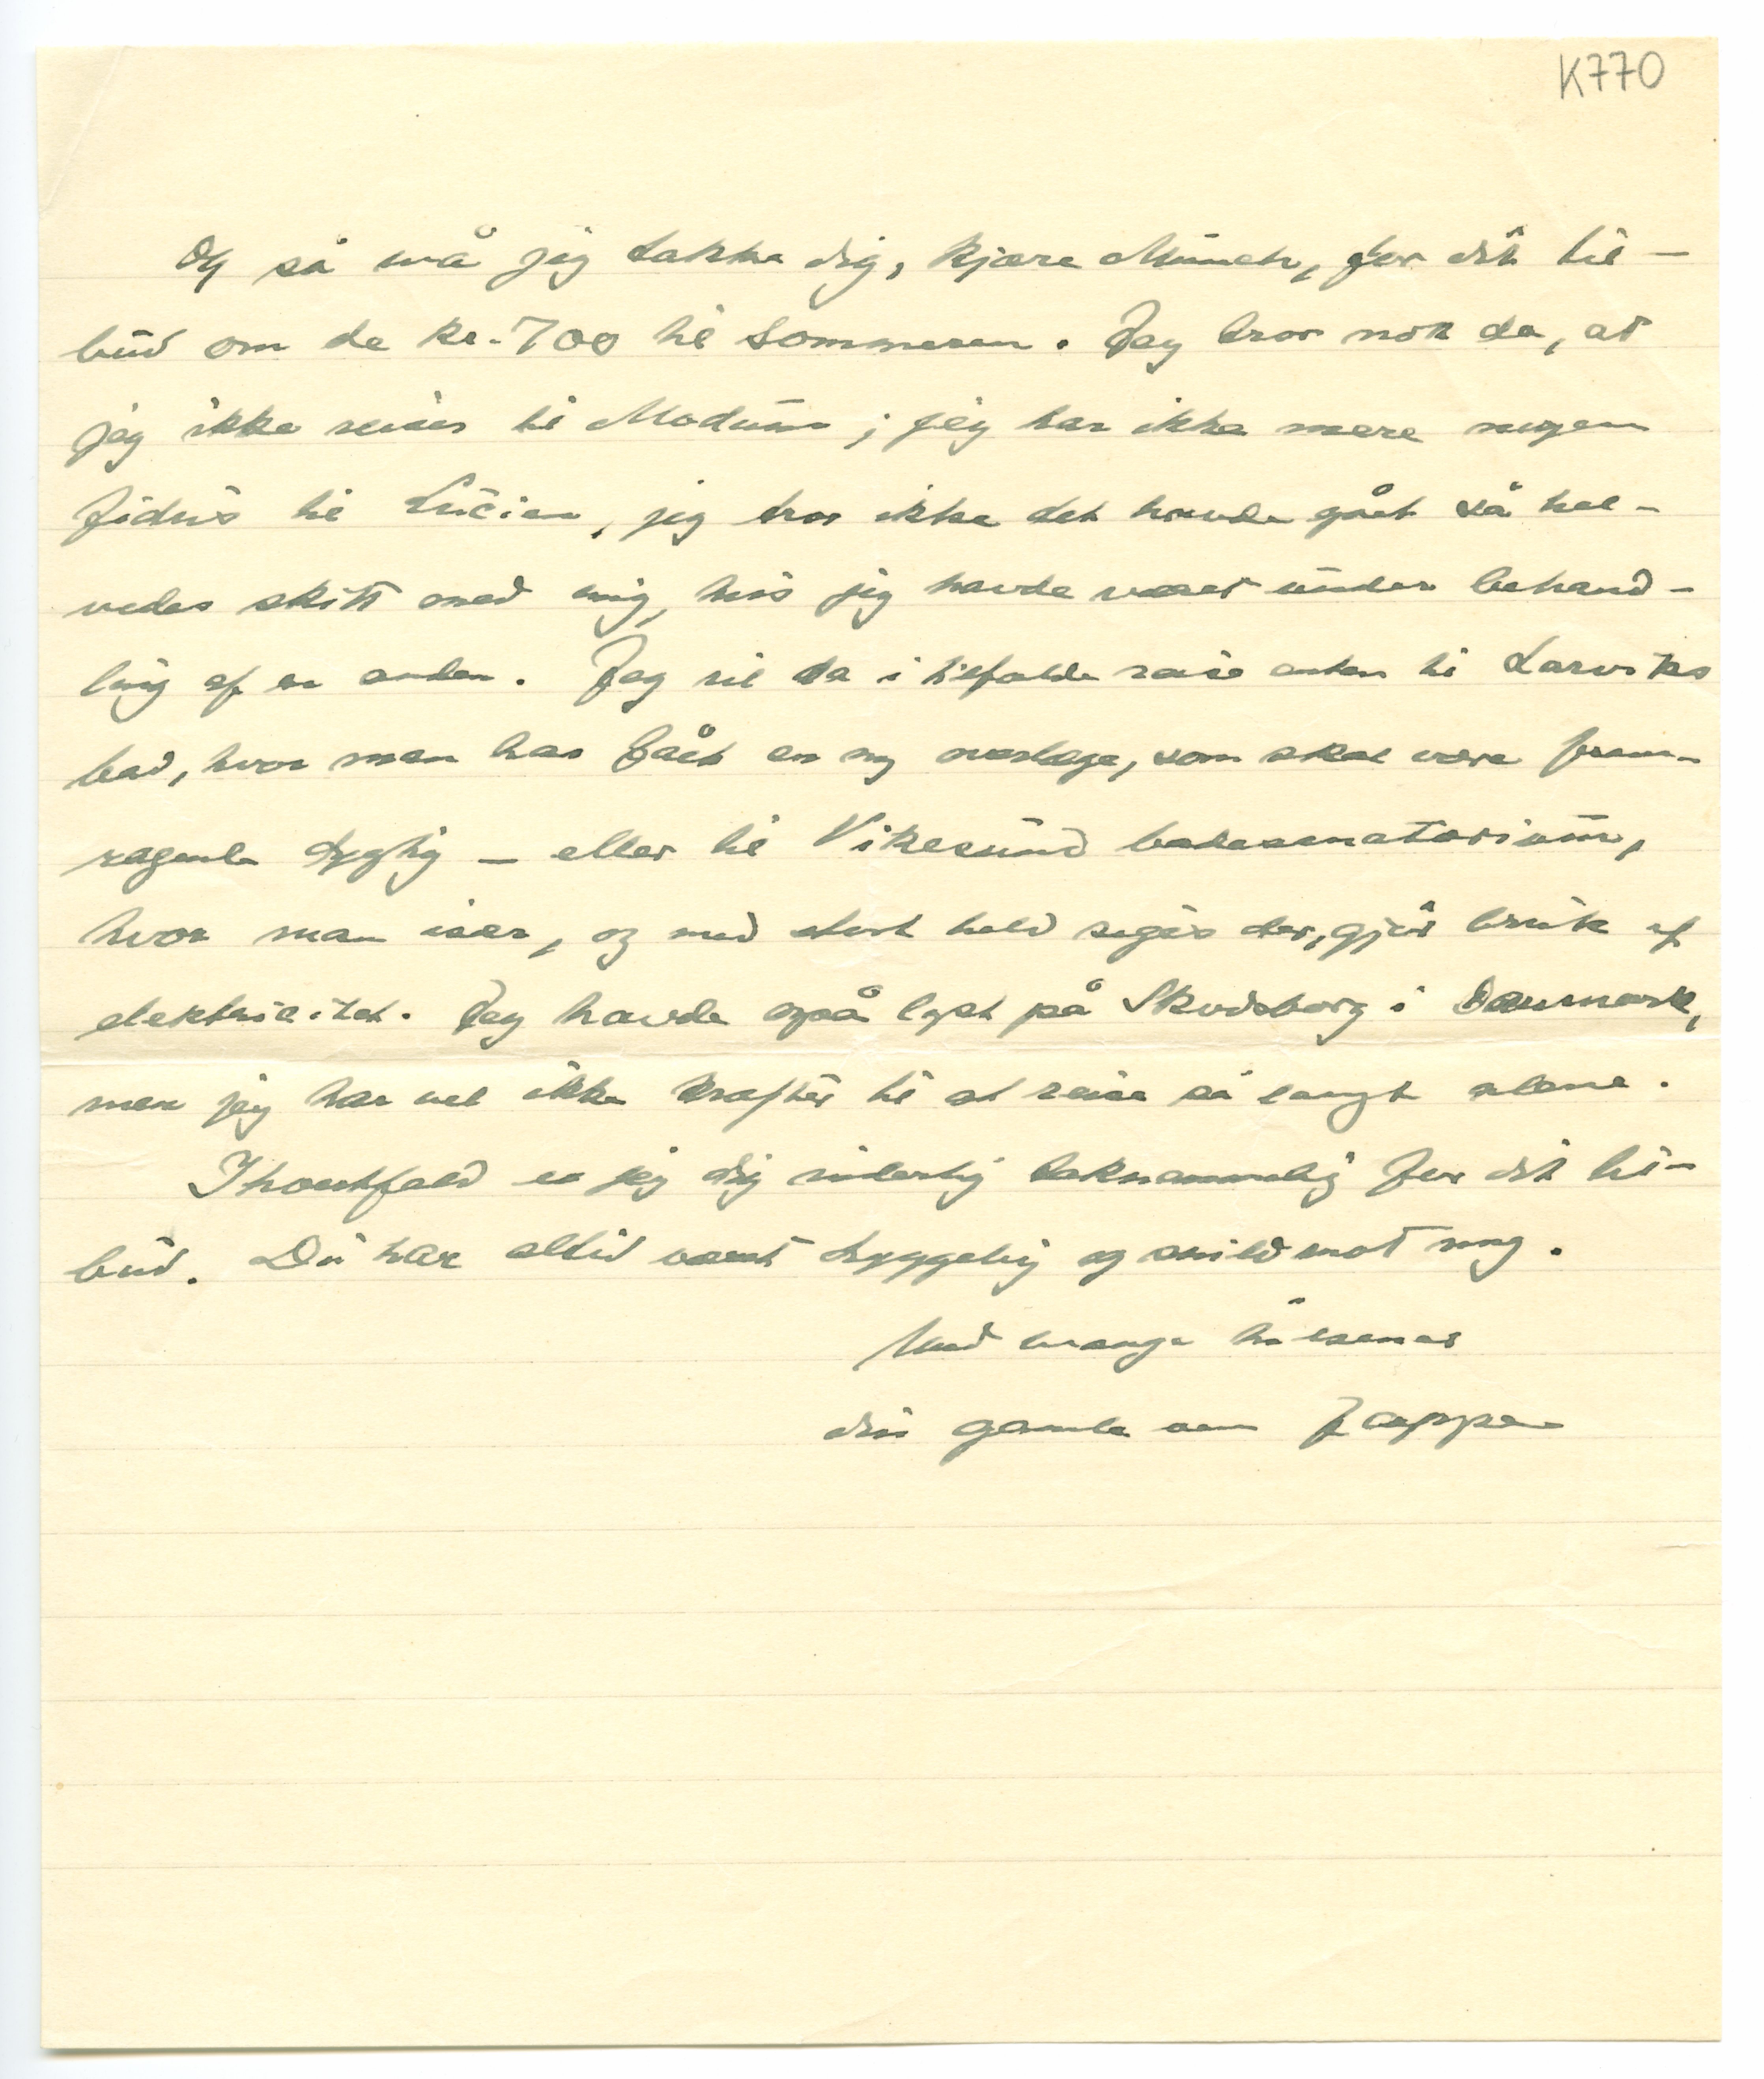 K770
Og så må jeg takke dig, kjære Munch, for dit til-
bud om de kr. 700 til sommeren. Jeg tror nok da, at
jeg ikke reiser til Modum; jeg har ikke mere nogen
fidus til Lucien, jeg tror ikke det havde gået så hel-
vedes skitt med mig, hvis jeg havde været under behand-
ling af en anden. Jeg vil da i tilfælde reise enten til Larviks
bad, hvor man har fået en ny overlæge, som skal være frem-
ragende dygtig – eller til Vikesund badesanatorium,
hvor man især, og med stort held siges der, gjør bruk af
elektricitet. Jeg havde også lyst på Skodsborg i Danmark,
men jeg har vel ikke kræfter til at reise så langt alene.
I hvertfald er jeg dig inderlig taknæmmelig for dit til-
bud. Du har altid været hyggelig og snild mot mig.
Med mange hilsener
din gamle ven Jappe